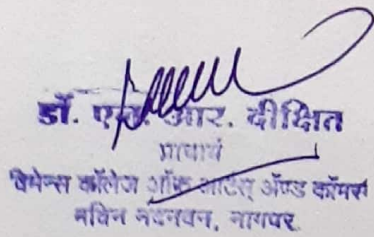 डॉ. आर. दीक्षित
प्राचार्य
विमेन्स कॉलेज ऑफ आर्टस् अ‍ॅण्ड कॉमर्स
नविन नंदनवन, नागपूर